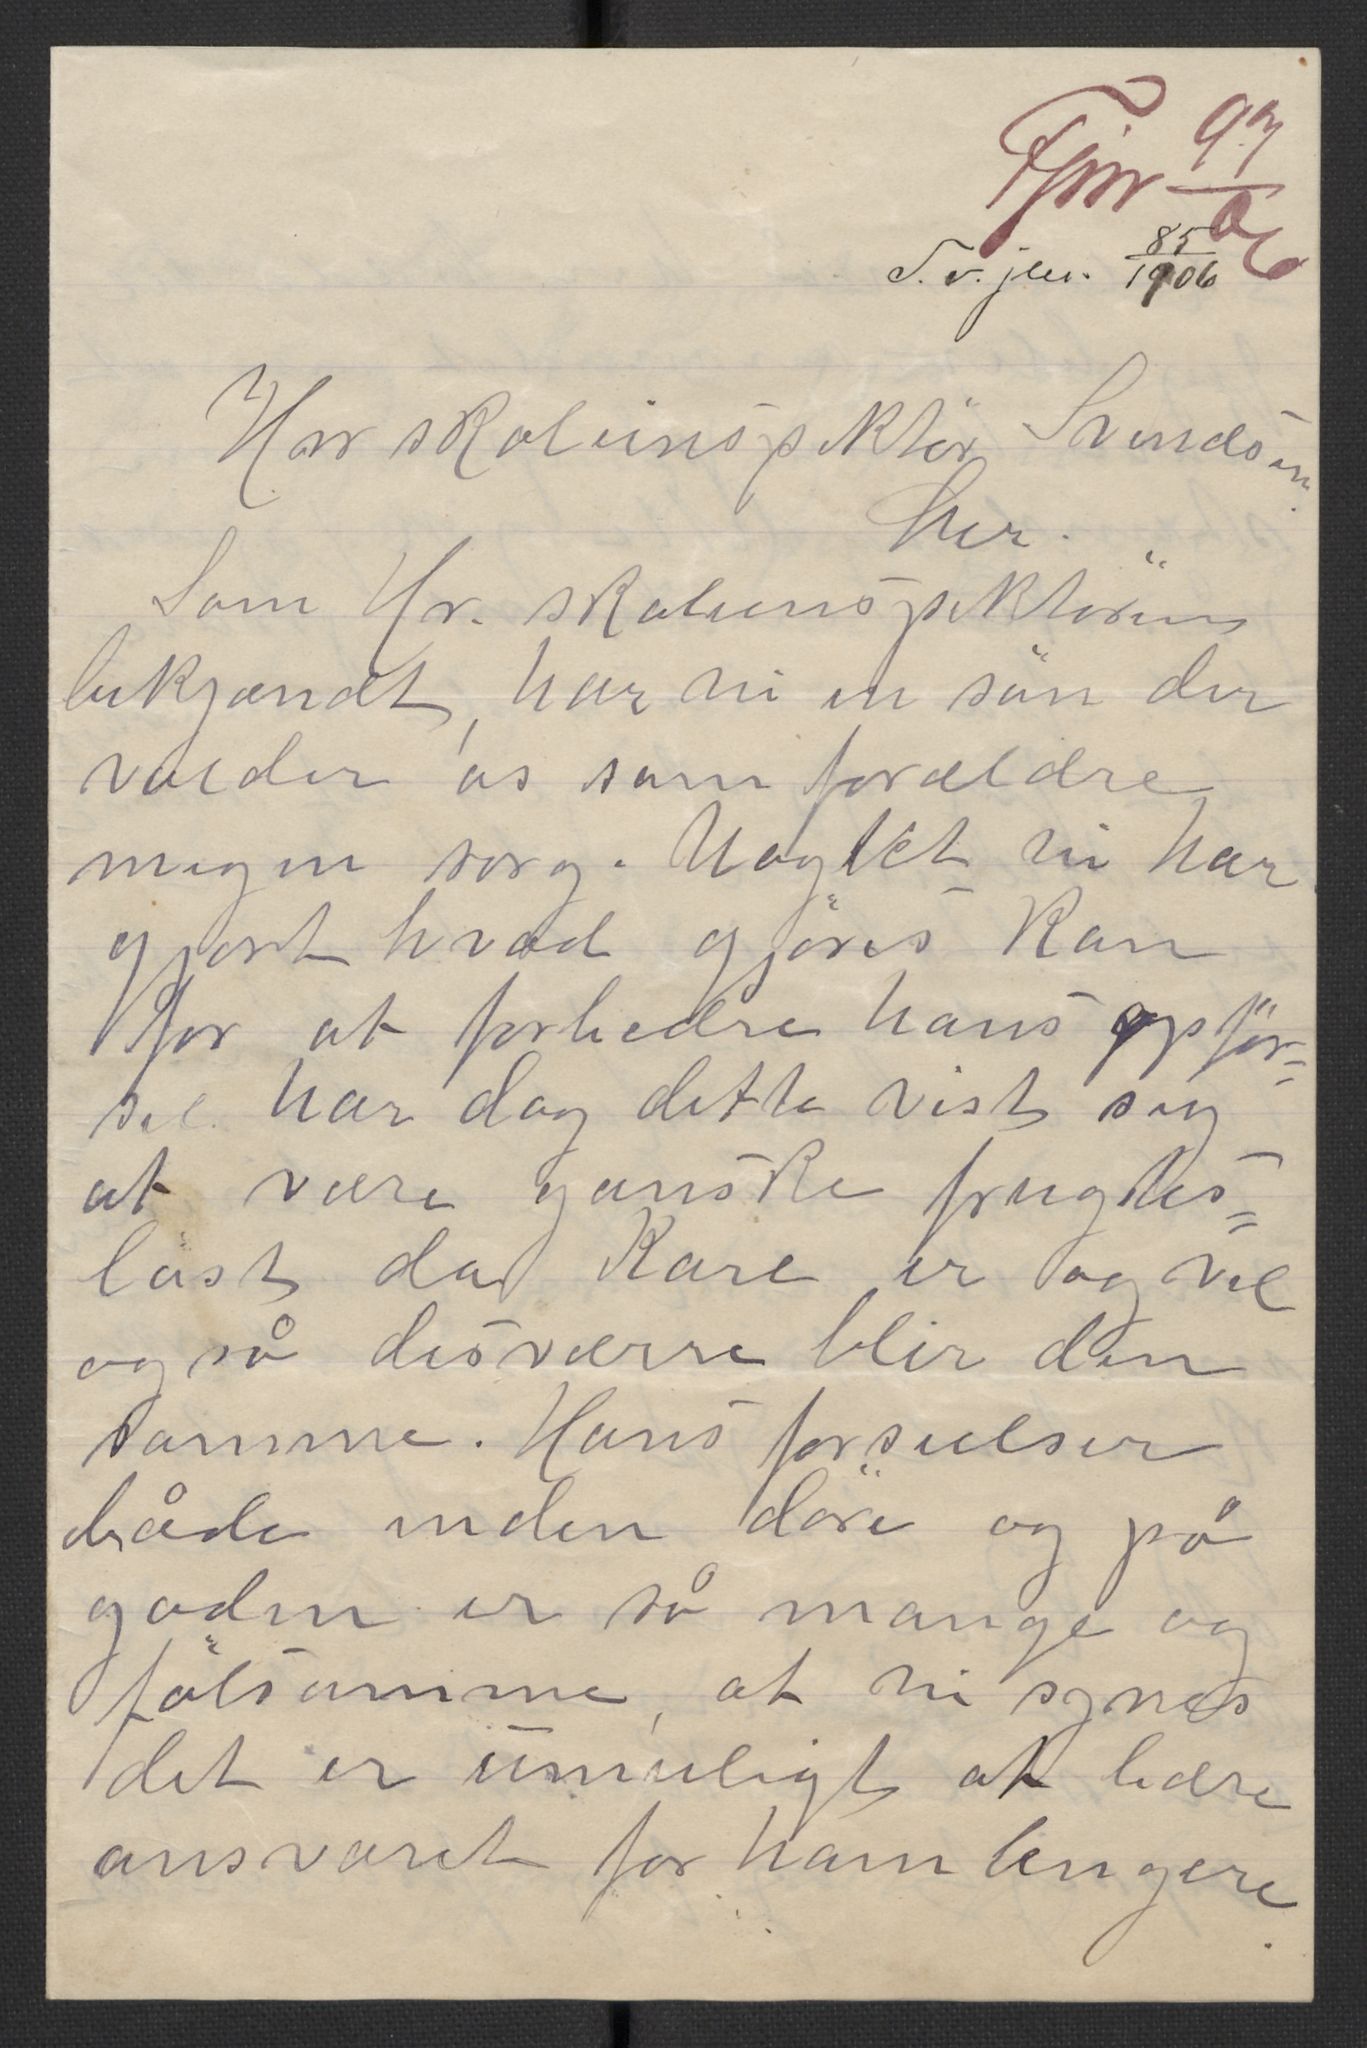 97
Fjnr
06
S. v. jnr. 85
1906
Herr skoleinspektör Svendsen
her.
Som Hr. skoleinspektören
bekjændt, har vi en sön der
volder os som forældre
megen sorg. Uagtet vi har
gjort hvad gjöres kan
for at forbedre hans opför=
sel har dog dette vist sig
at være ganske frugtes=
löst da Kare er og vel
også desværre blir den
samme. Hans forseelser
både inden döre og på
gaden er så mange og
fölsomme, at vi synes
det er umuligt at bære
ansvaret for ham lengere